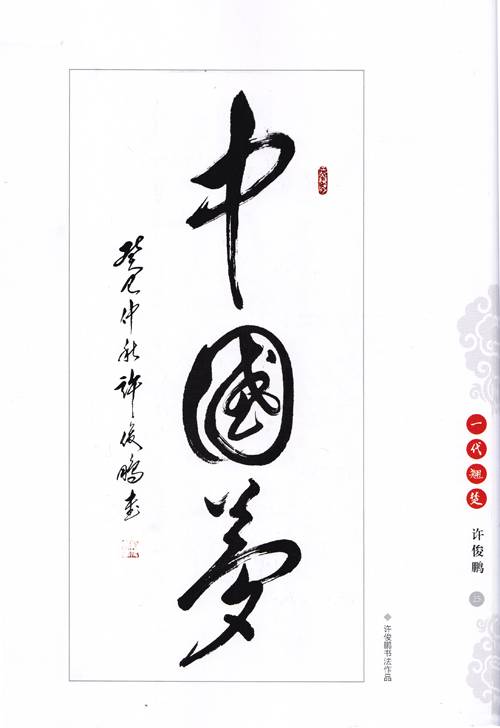 中國夢
癸巳仲秋許俊鵬書
一代翘楚
许俊鹏
25
◆许俊鹏书法作品